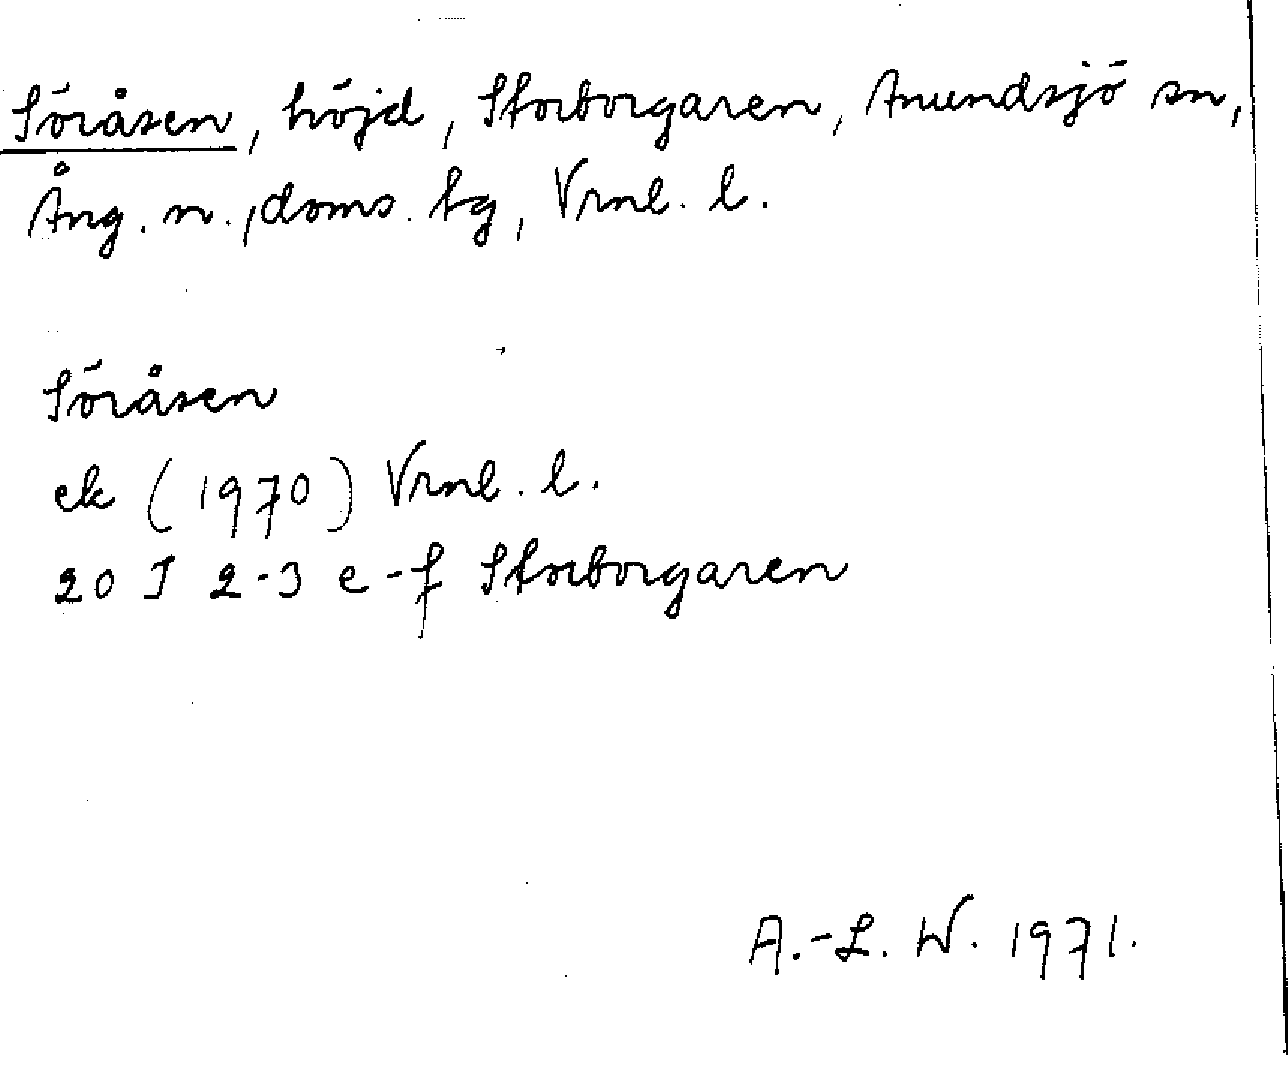 Söråsen, höjd, Storborgaren, Anundsjö sn,
Ång. n., doms. tg, Vrnl. l.
Söråsen
ek (1970) Vrnl. l.
20 I 2-3 e-f Storborgaren
A.-L. W. 1971.